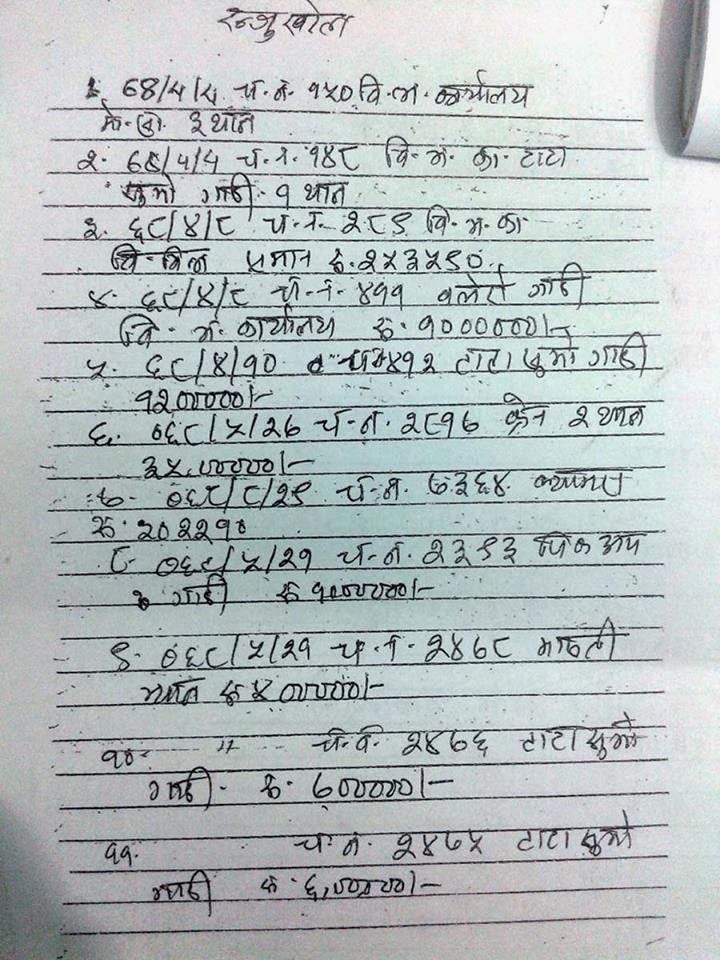 रन्जु खोला
१ 68/५/८ च. नं. १५० वि.भ. कार्यालय
३ थान
२. 68/५/५ च. नं. १४८ वि. भं. का. टाटा
सुमो गाडी. १ थान
३. ६८/४/८ च. नं. २८९ वि. भ. का
रु. २५३५९०
४. ६८/४/८ च. नं. ४११ गाडी
वि. भं. कार्यालय रु. १००००००।-
५. ६८/४/१० ४१२ टाटा सुमो गाडी
१२०००००।-
६. ०६८/५/२6 च. नं. २८१6 क्रेन २ थान
३५,०००००।-
७. ०६८/८/२९ च. नं. ७३६४
रु. २0२२१0
८. ०६८/५/२१ च. नं. २३९३ पिकअप
गाडी रु १००००००।-
९. ०६८/५/२१ च. नं. २४७८ मारुती
भ्यान रु ४०००००।-
१०. " च. नं. २४७६ टाटा सुमो
गाडी. रु. ६०००००।-
११. च. नं. २४७५ टाटा सुमो
गाडी रु. ६,०००००।-